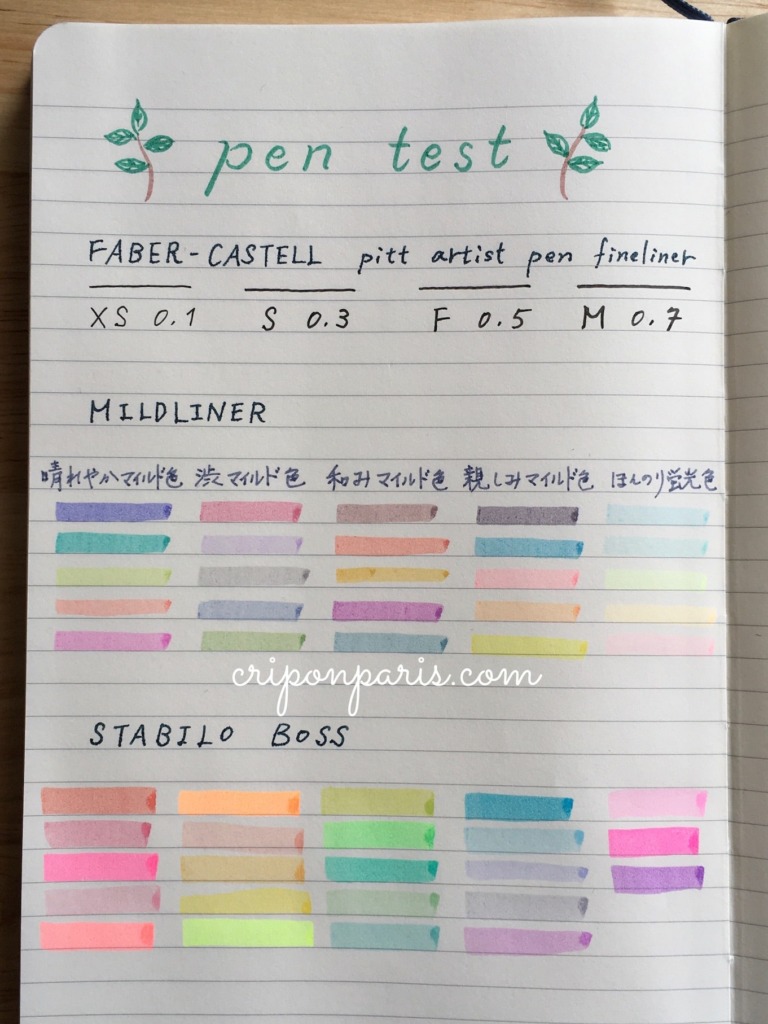 pen test
FABER-CASTELL pitt artist pen fineliner
XS 0.1 S 0.3 F 0.5 M 0.7
MILDLINER
晴れやかマイルド色 渋マイルド色 和みマイルド色 親しみマイルド色 ほんのり蛍光色
criponparis.com
STABILO BOSS